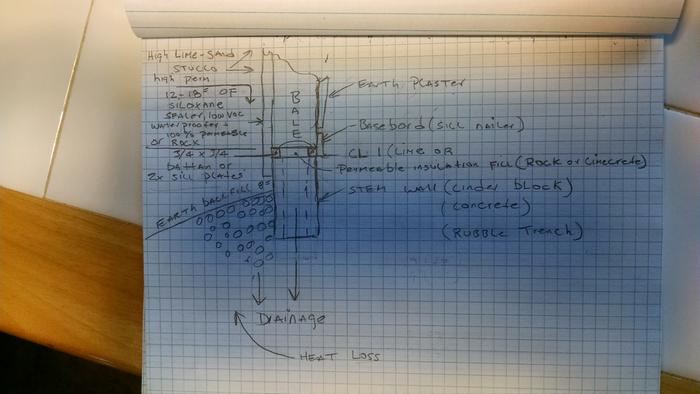 High Lime-Sand
STUCCO
high perm
12-18" OF
SILOXANE
SEALER, 100 VOC
waterproofer +
100% permeable
or ROCK
3/4 x 3/4
battan or
2x sill plates
EARTH backfill 8"
BALE
EARTH PLASTER
Basebord (sill nailer)
CL 1 (Lime OR
Permeable insulation fill (Rock or Limecrete)
STEM WALL (Cinder block)
(concrete)
(RUBBLE Trench)
DRainage
HEAT LOSS